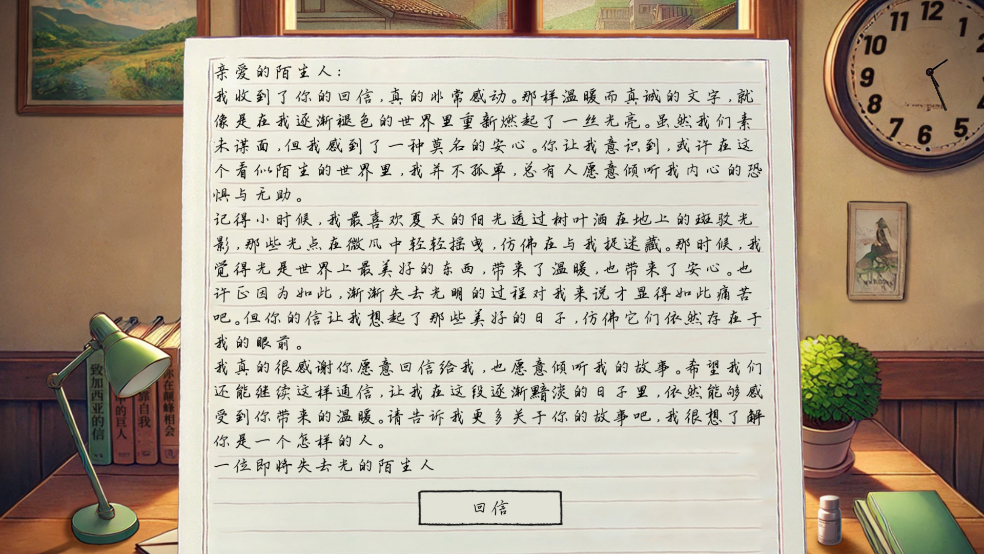 亲爱的陌生人：
我收到了你的回信，真的非常感动。那样温暖而真诚的文字，就
像是在我逐渐褪色的世界里重新燃起了一丝光亮。虽然我们素
未谋面，但我感到了一种莫名的安心。你让我意识到，或许在这
个看似陌生的世界里，我并不孤单，总有人愿意倾听我内心的恐
惧与无助。
记得小时候，我最喜欢夏天的阳光透过树叶洒在地上的斑驳光
影，那些光点在微风中轻轻摇曳，仿佛在与我捉迷藏。那时候，我
觉得光是世界上最美好的东西，带来了温暖，也带来了安心。也
许正因为如此，渐渐失去光明的过程对我来说才显得如此痛苦
吧。但你的信让我想起了那些美好的日子，仿佛它们依然存在于
我的眼前。
我真的很感谢你愿意回信给我，也愿意倾听我的故事。希望我们
还能继续这样通信，让我在这段逐渐黯淡的日子里，依然能够感
受到你带来的温暖。请告诉我更多关于你的故事吧，我很想了解
你是一个怎样的人。
一位即将失去光的陌生人
回信
致加西亚的信
的巨人
靠自我
在巅峰相会
12
1
2
10
9
8
7
6
5